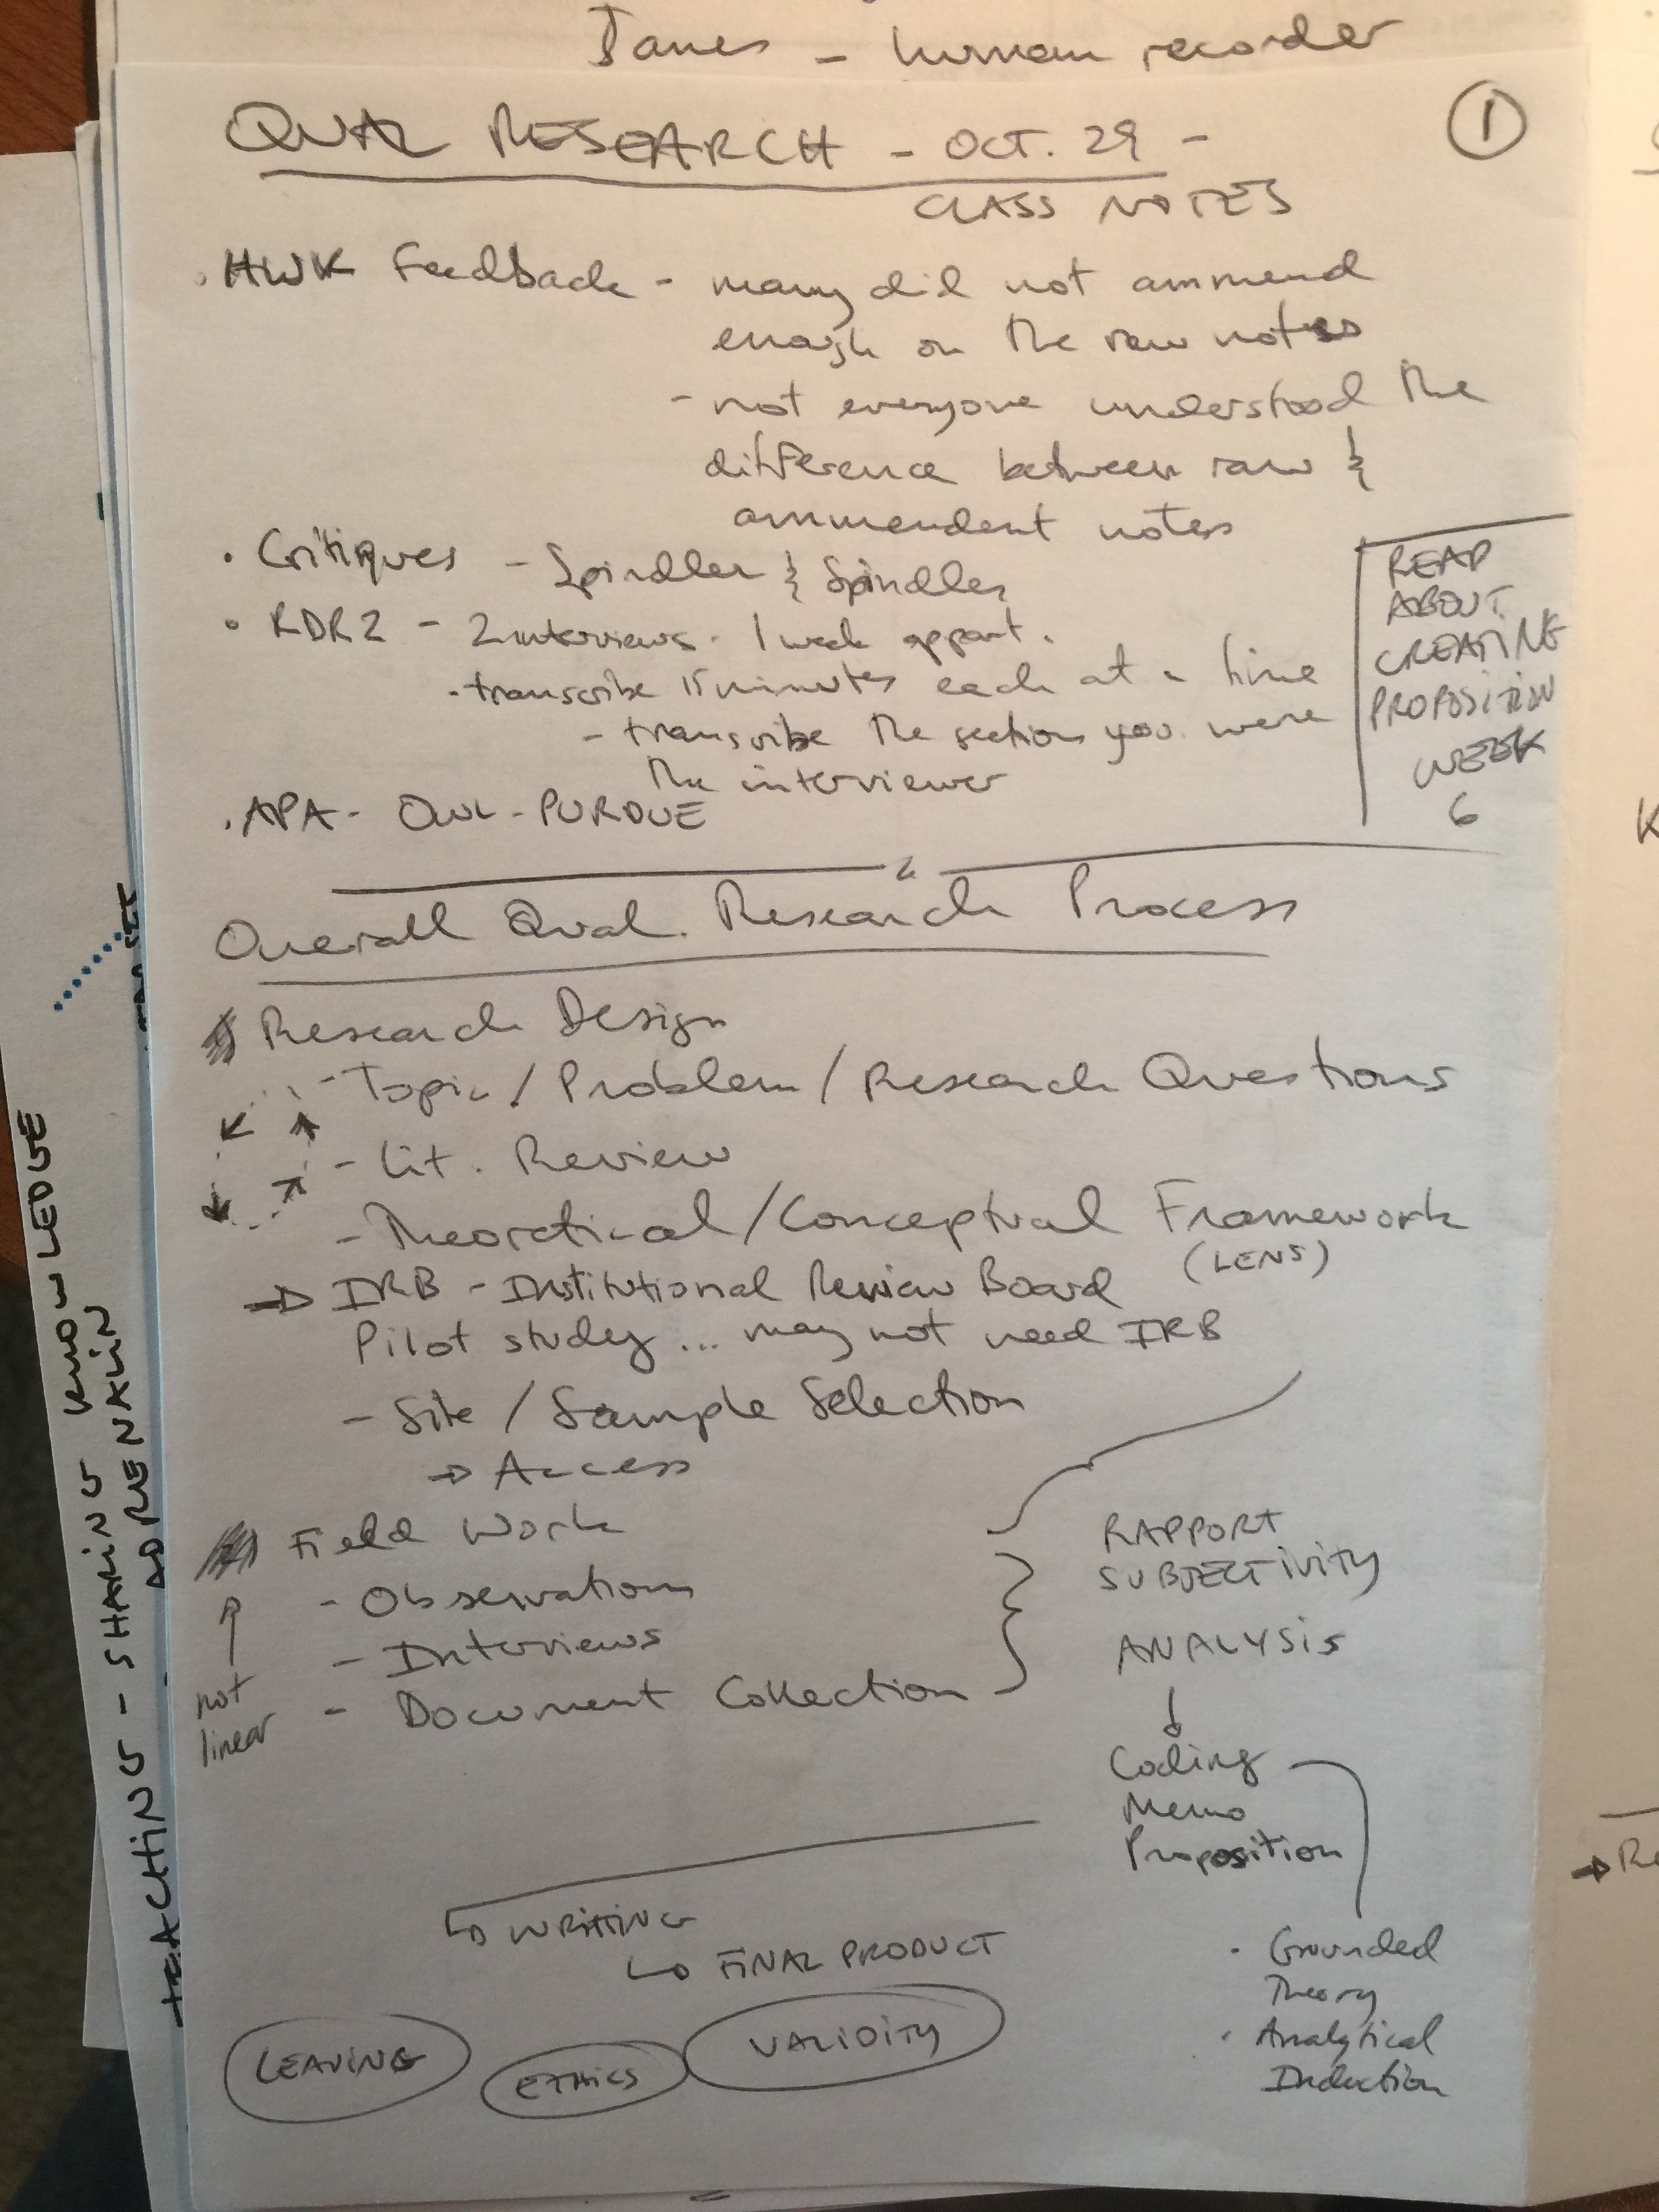 James - human recorder
QUAL RESEARCH - OCT. 29 -
①
CLASS NOTES
. HWK Feedback - many did not ammend
enough on the raw notes
- not everyone understood the
difference between raw &
ammendent notes
• Critiques - Spindler & Spindler
• RDR2 - 2 interviews - 1 week appart.
- transcribe 15 minutes each at a time
- transcribe the section you were
the interviewer
. APA - OWL - PURDUE
READ
ABOUT
CREATING
PROPOSITION
WEEK
6
Overall Qual. Research Process
Research Design
- Topic / Problem / Research Questions
- Lit. Review
- Theoretical / Conceptual Framework
(LENS)
→ IRB - Institutional Review Board
Pilot study ... may not need IRB
- Site / Sample Selection
→ Access
Field Work
- Observations
- Interviews
- Document Collection
not
linear
RAPPORT
SUBJECTIVITY
ANALYSIS
↓
Coding
Memo
Proposition
• Grounded
Theory
• Analytical
Induction
↳ WRITTING
↳ FINAL PRODUCT
LEAVING
ETHICS
VALIDITY
TEACHING - SHARING KNOWLEDGE
ADRENALIN
K
→ Re